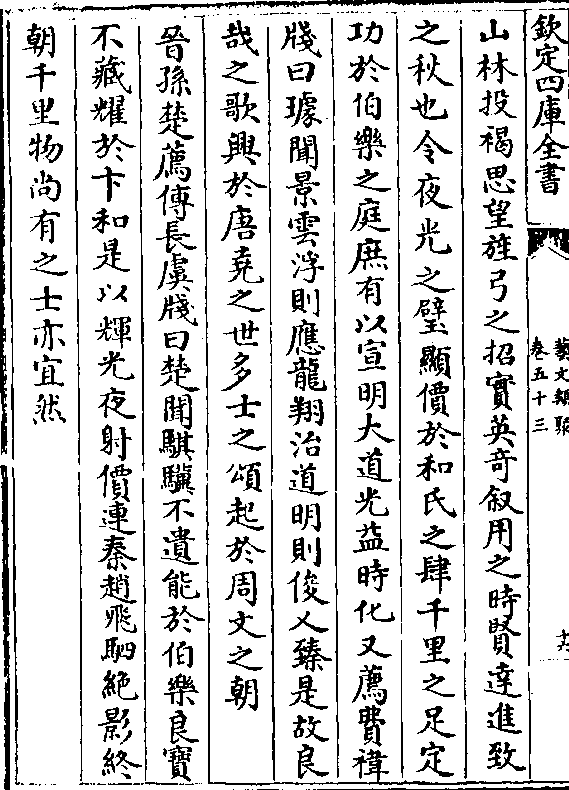 欽定四庫全書
藝文類聚
卷五十三
十六
山林投褐思望旌弓之招實英奇叙用之時賢逹進致
之秋也令夜光之璧顯價於和氏之肆千里之足定
功於伯樂之庭庶有以宣明大道光益時化又薦費禕
牋曰璩聞景雲浮則應龍翔治道明則俊乂臻是故良
哉之歌興於唐堯之世多士之頌起於周文之朝
晉孫楚薦傅長虞牋曰楚聞騏驥不遺能於伯樂良寶
不藏耀於卞和是以輝光夜射價連秦趙飛駟絶影終
朝千里物尚有之士亦宜然